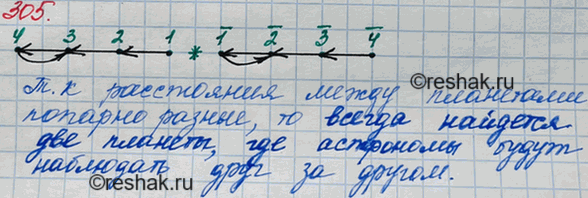 305.
4 3 2 1 * 1̅ 2̅ 3̅ 4̅
©reshak.ru
Т. к расстояния между планетами
попарно разные, то всегда найдется
две планеты, где астрономы будут
наблюдать друг за другом.
©reshak.ru